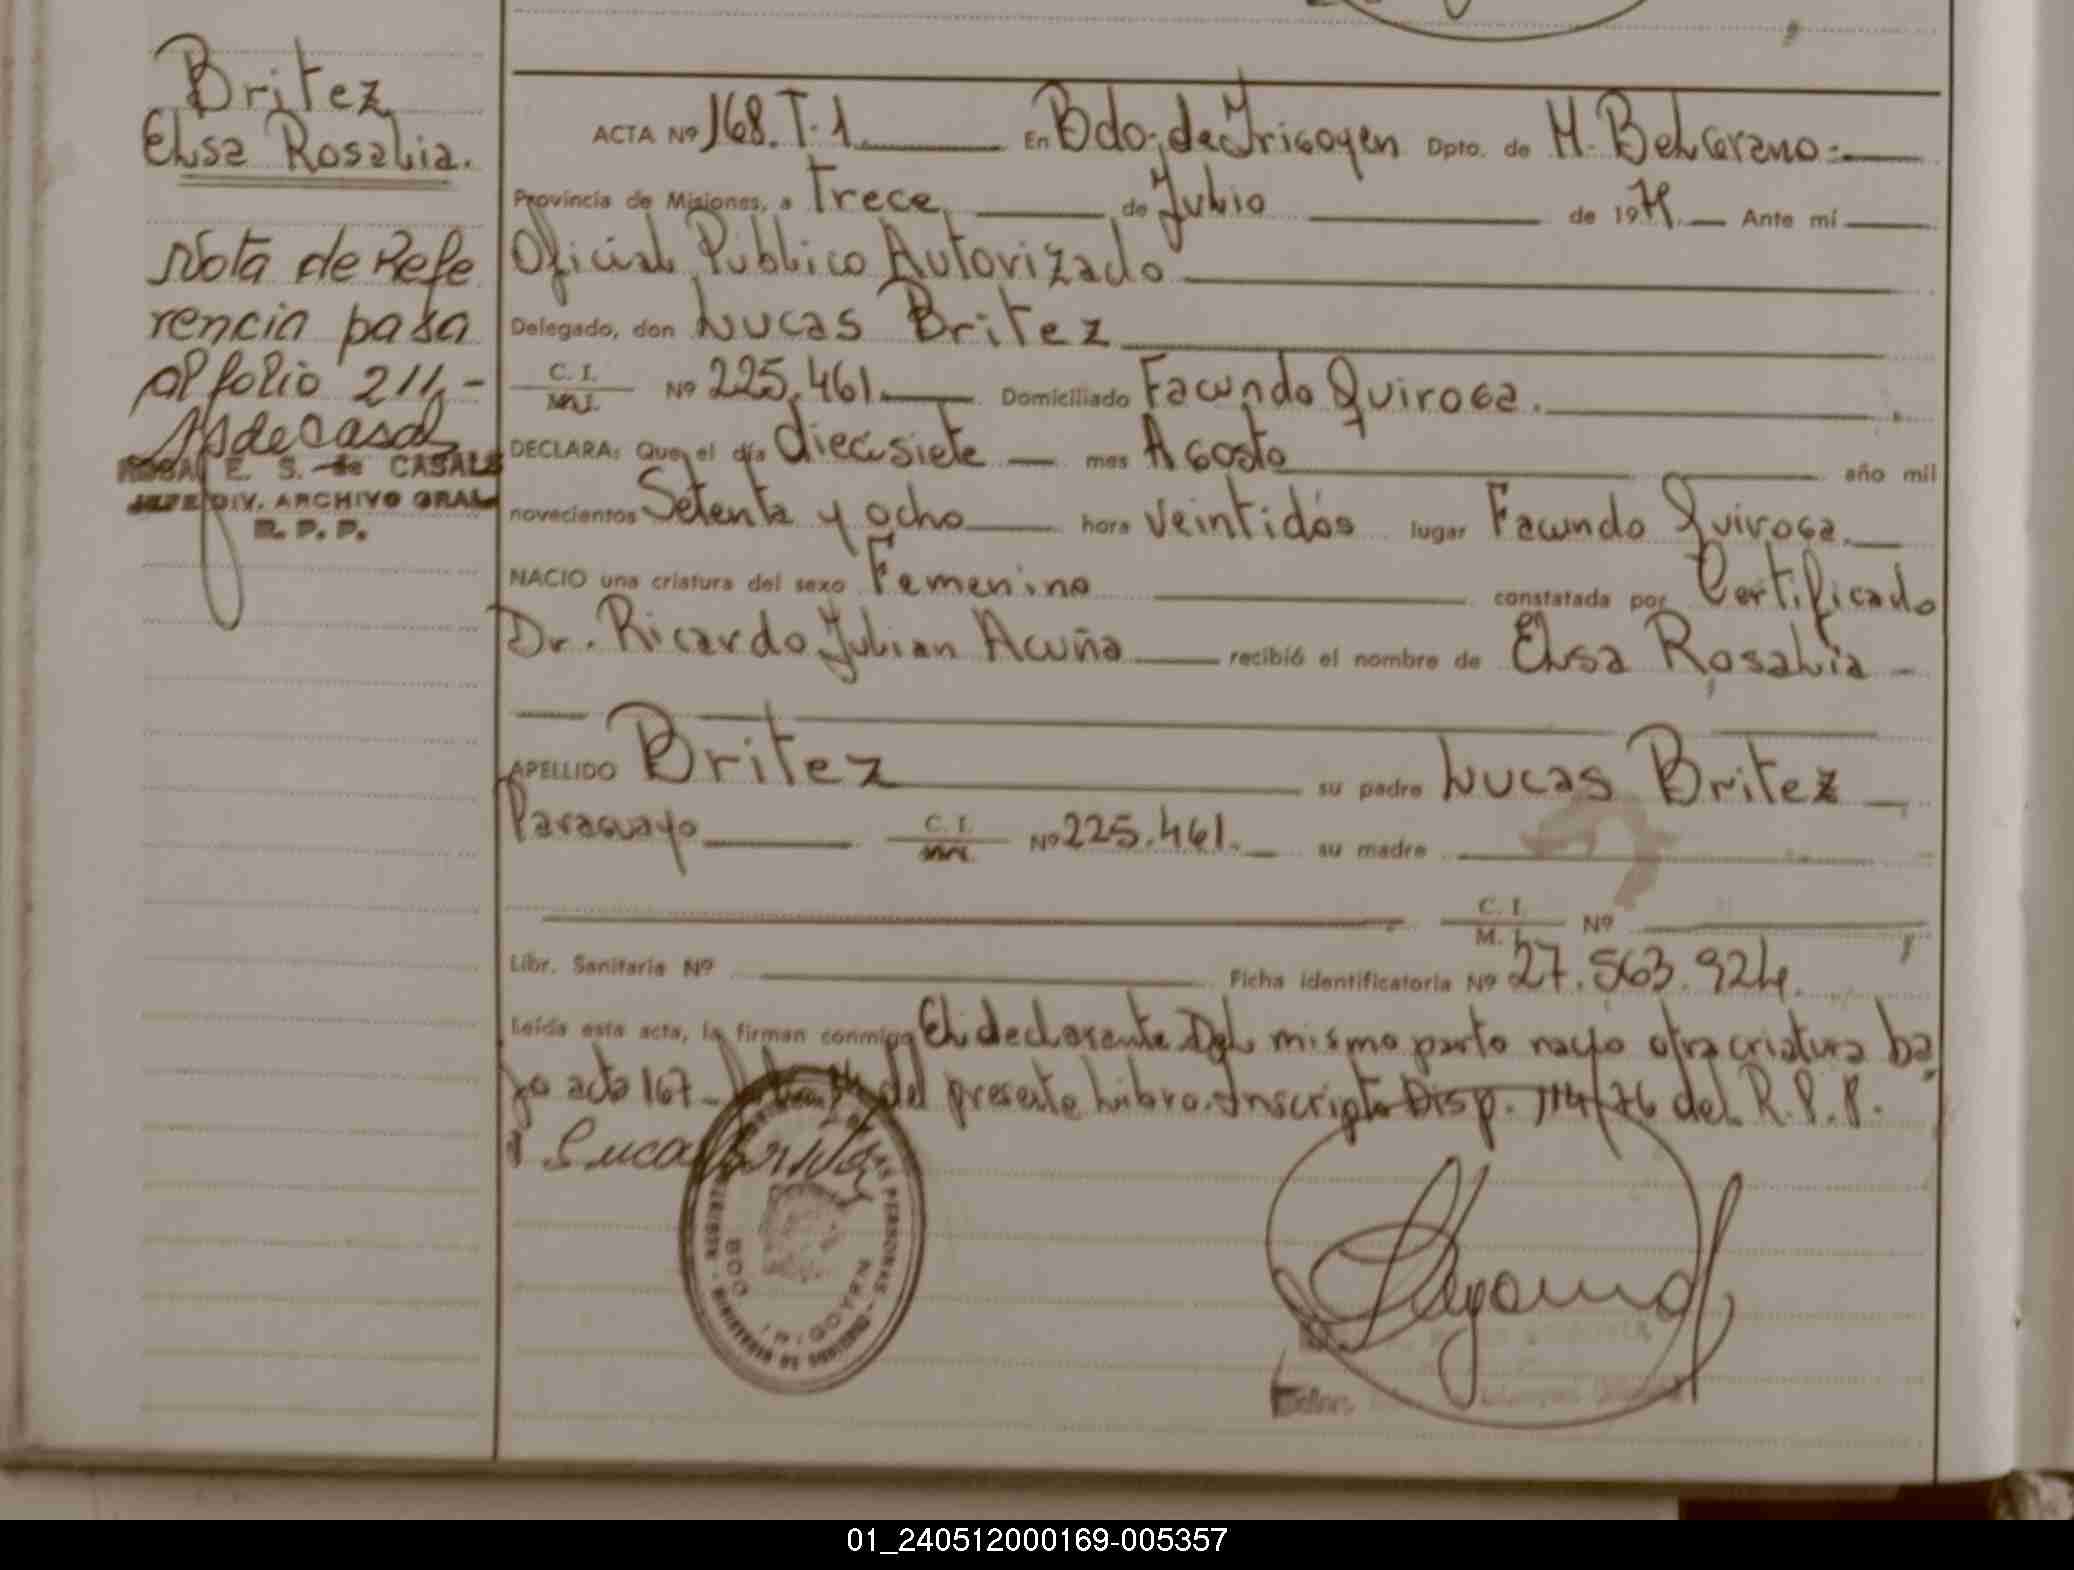 Britez
Elsa Rosalia.
Nota de Refe
rencia pasa
al folio 211,-
ROSA E. S. de CASALS
JEFE DIV. ARCHIVO GRAL
R. P. P.
ACTA Nº 168. T-1. En Bdo. de Irigoyen Dpto. de M. Belgrano.
Provincia de Misiones, a Trece de Julio de 19 Ante mí
Oficial Público Autorizado
Delegado, don Lucas Britez
C. I. Nº 225.461. Domiciliado Facundo Quiroga.
DECLARA: Que el día diecisiete mes Agosto año mil
novecientos Setenta y ocho hora veintidós lugar Facundo Quiroga.
NACIO una criatura del sexo Femenino constatada por Certificado
Dr. Ricardo Julian Acuña recibió el nombre de Elsa Rosalia
APELLIDO Britez su padre Lucas Britez
Paraguayo C. I. Nº 225.461. su madre
C. I. Nº
M. I.
Libr. Sanitaria Nº Ficha identificatoria Nº 27.563.924.
Leída esta acta, la firman conmigo El declarante Del mismo parto nacio otra criatura ba
jo acta 167 del presente Libro. Inscripto Disp. 114/76 del R.P.P.
Lucas Britez
BDO IRIGOYEN
01_240512000169-005357